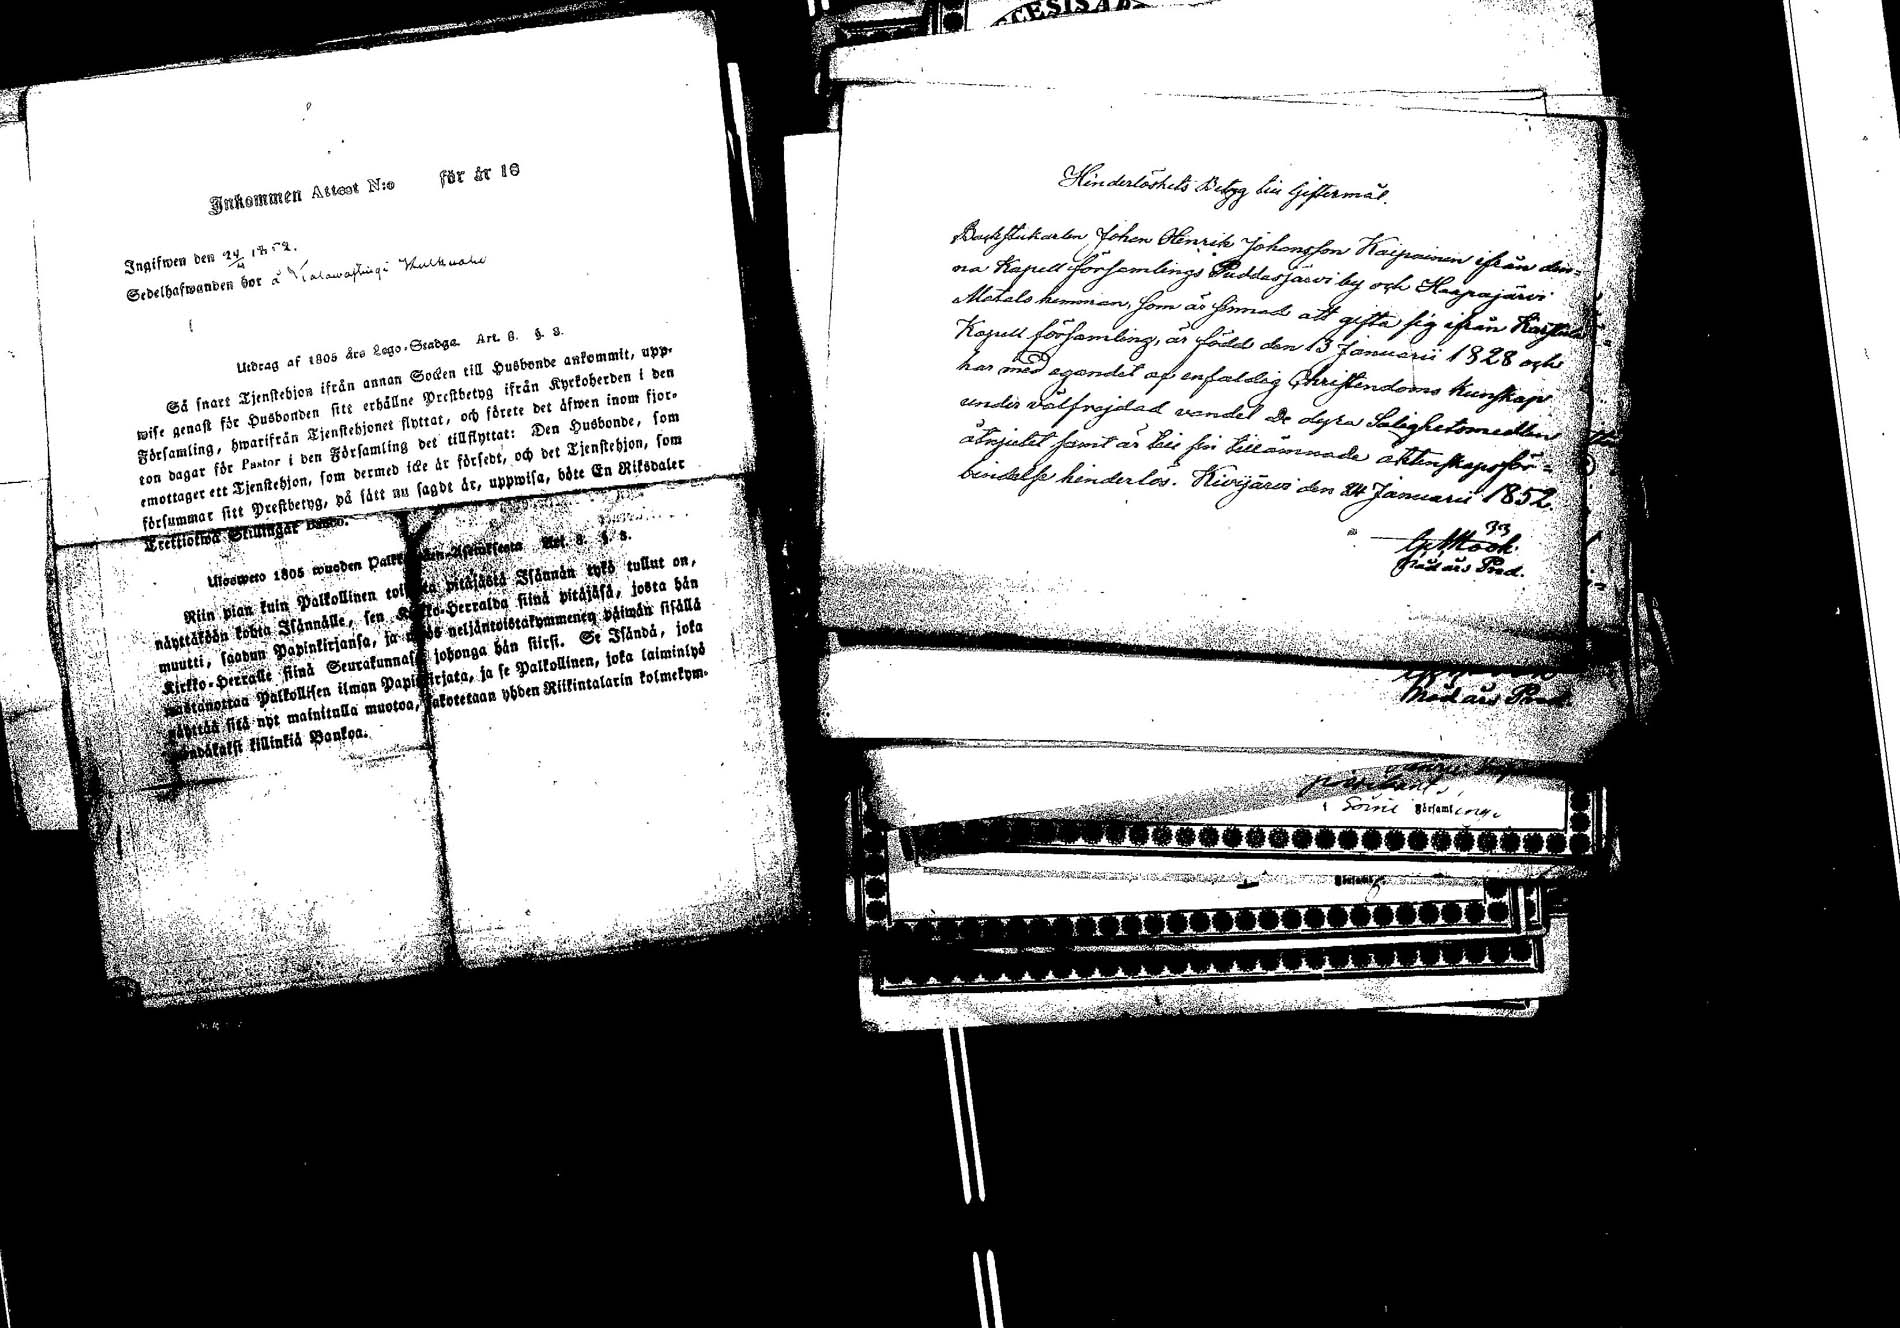 Inkommen Attest N:o för år 18
Ingifwen den 24/4 1852.
Sedelhafwanden bor å
Utdrag af 1805 års Lego-Stadga. Art. 8. §. 3.
Så snart Tjenstehjon ifrån annan Socken till Husbonde ankommit, upp-
wise genast för Husbonden sitt erhållne Prestbetyg ifrån Kyrkoherden i den
Församling, hwarifrån Tjenstehjonet flyttat, och förete det äfwen inom fjor-
ton dagar för Pastor i den Församling det tillflyttat: Den Husbonde, som
emottager ett Tjenstehjon, som dermed icke är försedt, och det Tjenstehjon, som
försummar sitt Prestbetyg, på sätt nu sagdt är, uppwisa, böte En Riksdaler
Trettiotwå Skillingar Banco.
Ulosweto 1805 wuoden Asetuksesta Art. 8. §. 3.
Niin pian kuin Palkollinen toisesta pitäjästä Isännän tykö tullut on,
näyttäköön kohta Isännälle, sen Kirkko-Herralda siinä pitäjäsä, josta hän
muutti, saadun Papinkirjansa, ja myös neljäntoistakymmenen päiwän sisällä
Kirkko-Herralle siinä Seurakunnasa johonga hän siirsi. Se Isändä, joka
wastanottaa Palkollisen ilman Papinkirjata, ja se Palkollinen, joka laiminlyö
näyttää sitä nyt mainitulla muotoa, sakotetaan yhden Riikintalarin kolmekym-
mendäkaksi killinkiä Bankoa.
Hinderlöshets Betyg till Giftermål.
Backstukarlen Johan Henrik Johansson Kaipainen ifrån den-
na Kapell församlings Puddasjärvi by och Haapajärvi
Mätals hemman, som är sinnad att gifta sig ifrån Karstula
Kapell församling, är född den 13 Januarii 1828 och
har med egandet af enfaldig Christendoms kunskap
under välfrejdad vandel De dyra Salighetsmedlen
åtnjutet samt är till sin tillämnade äktenskapsför-
bindelse hinderlös. Kivijärvi den 24 Januarii 1852.
Nådårs Pred.
Nådårs Pred.
Soini Församling